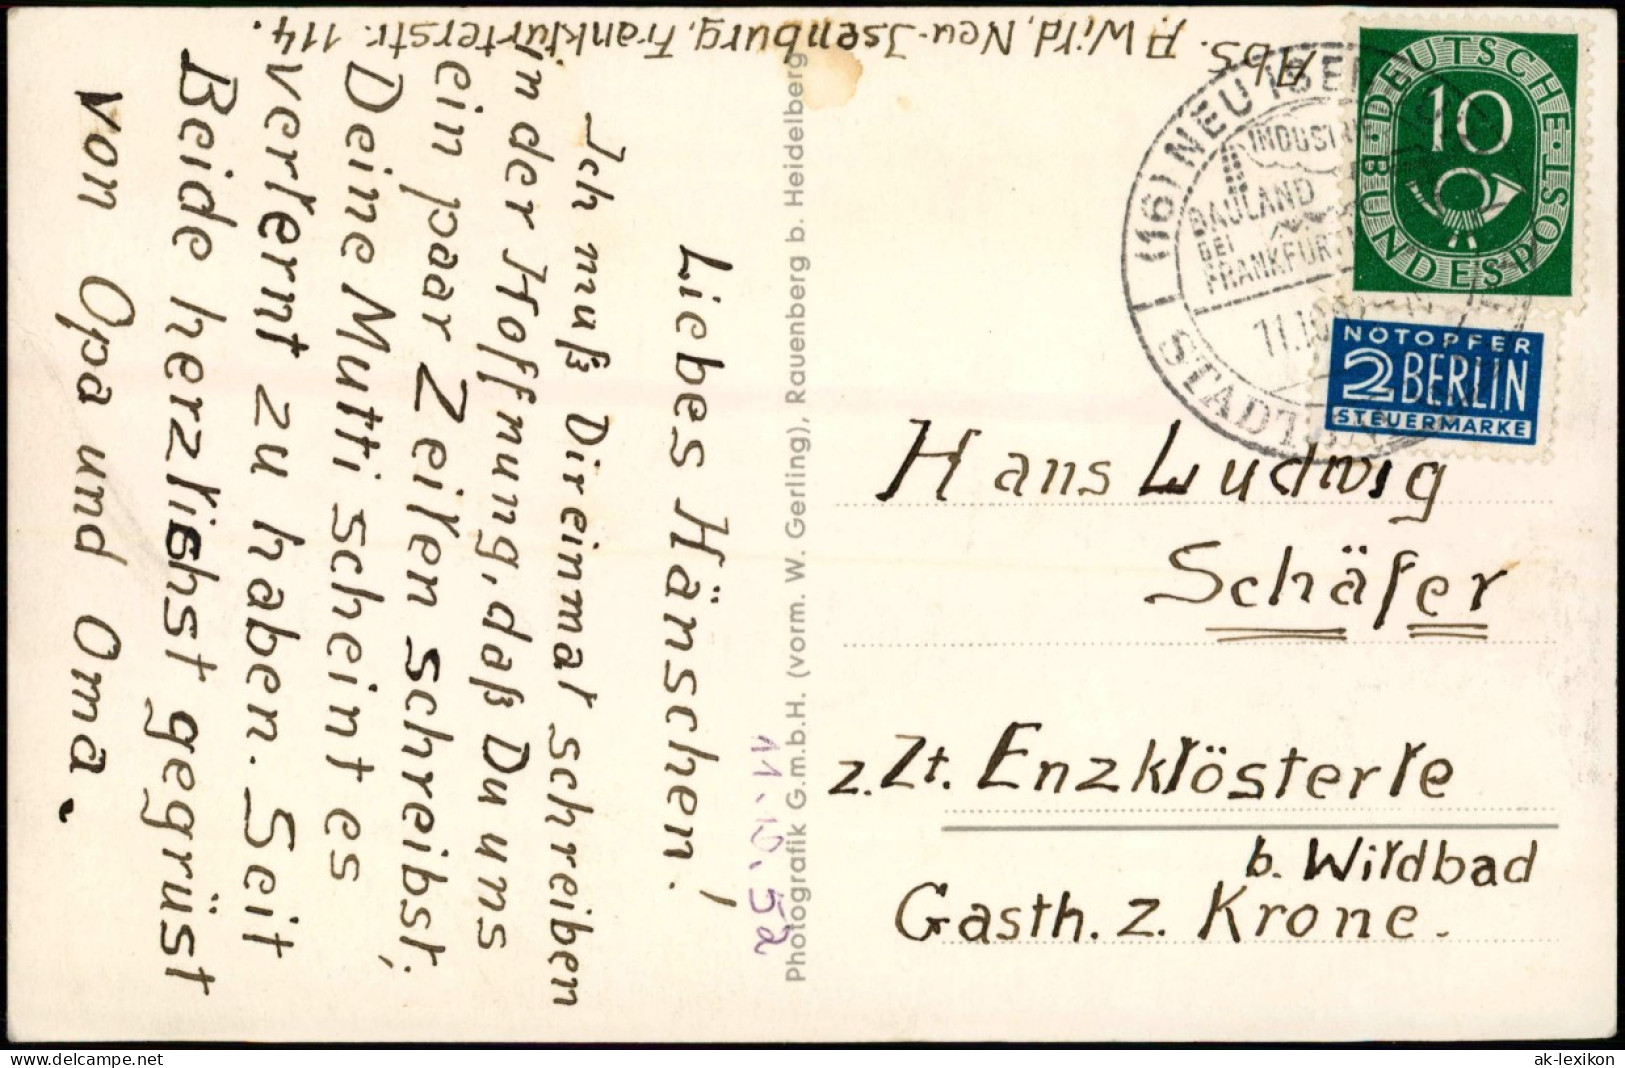 Abs. P. Wild, Neu-Isenburg, Frankfurterstr. 114.
Liebes Hänschen!
Ich muß Dir einmal schreiben
in der Hoffnung, daß Du uns
ein paar Zeilen schreibst,
Deine Mutti scheint es
verlernt zu haben. Seit
Beide herzlichst gegrüst
von Opa und Oma.
11.10.52
Photografik G.m.b.H. (vorm. W. Gerling), Rauenberg b. Heidelberg
(16) NEU ISEN
INDUSTR
BAULAND
BEI
FRANKFURT
11.10.
STADT
DEUTSCHE · BUNDESPOST
10
NOTOPFER
2 BERLIN
STEUERMARKE
Hans Ludwig
Schäfer
z.Zt. Enzklösterle
b. Wildbad
Gasth. z. Krone.
ak-lexikon.com
https://www.delcampe.net